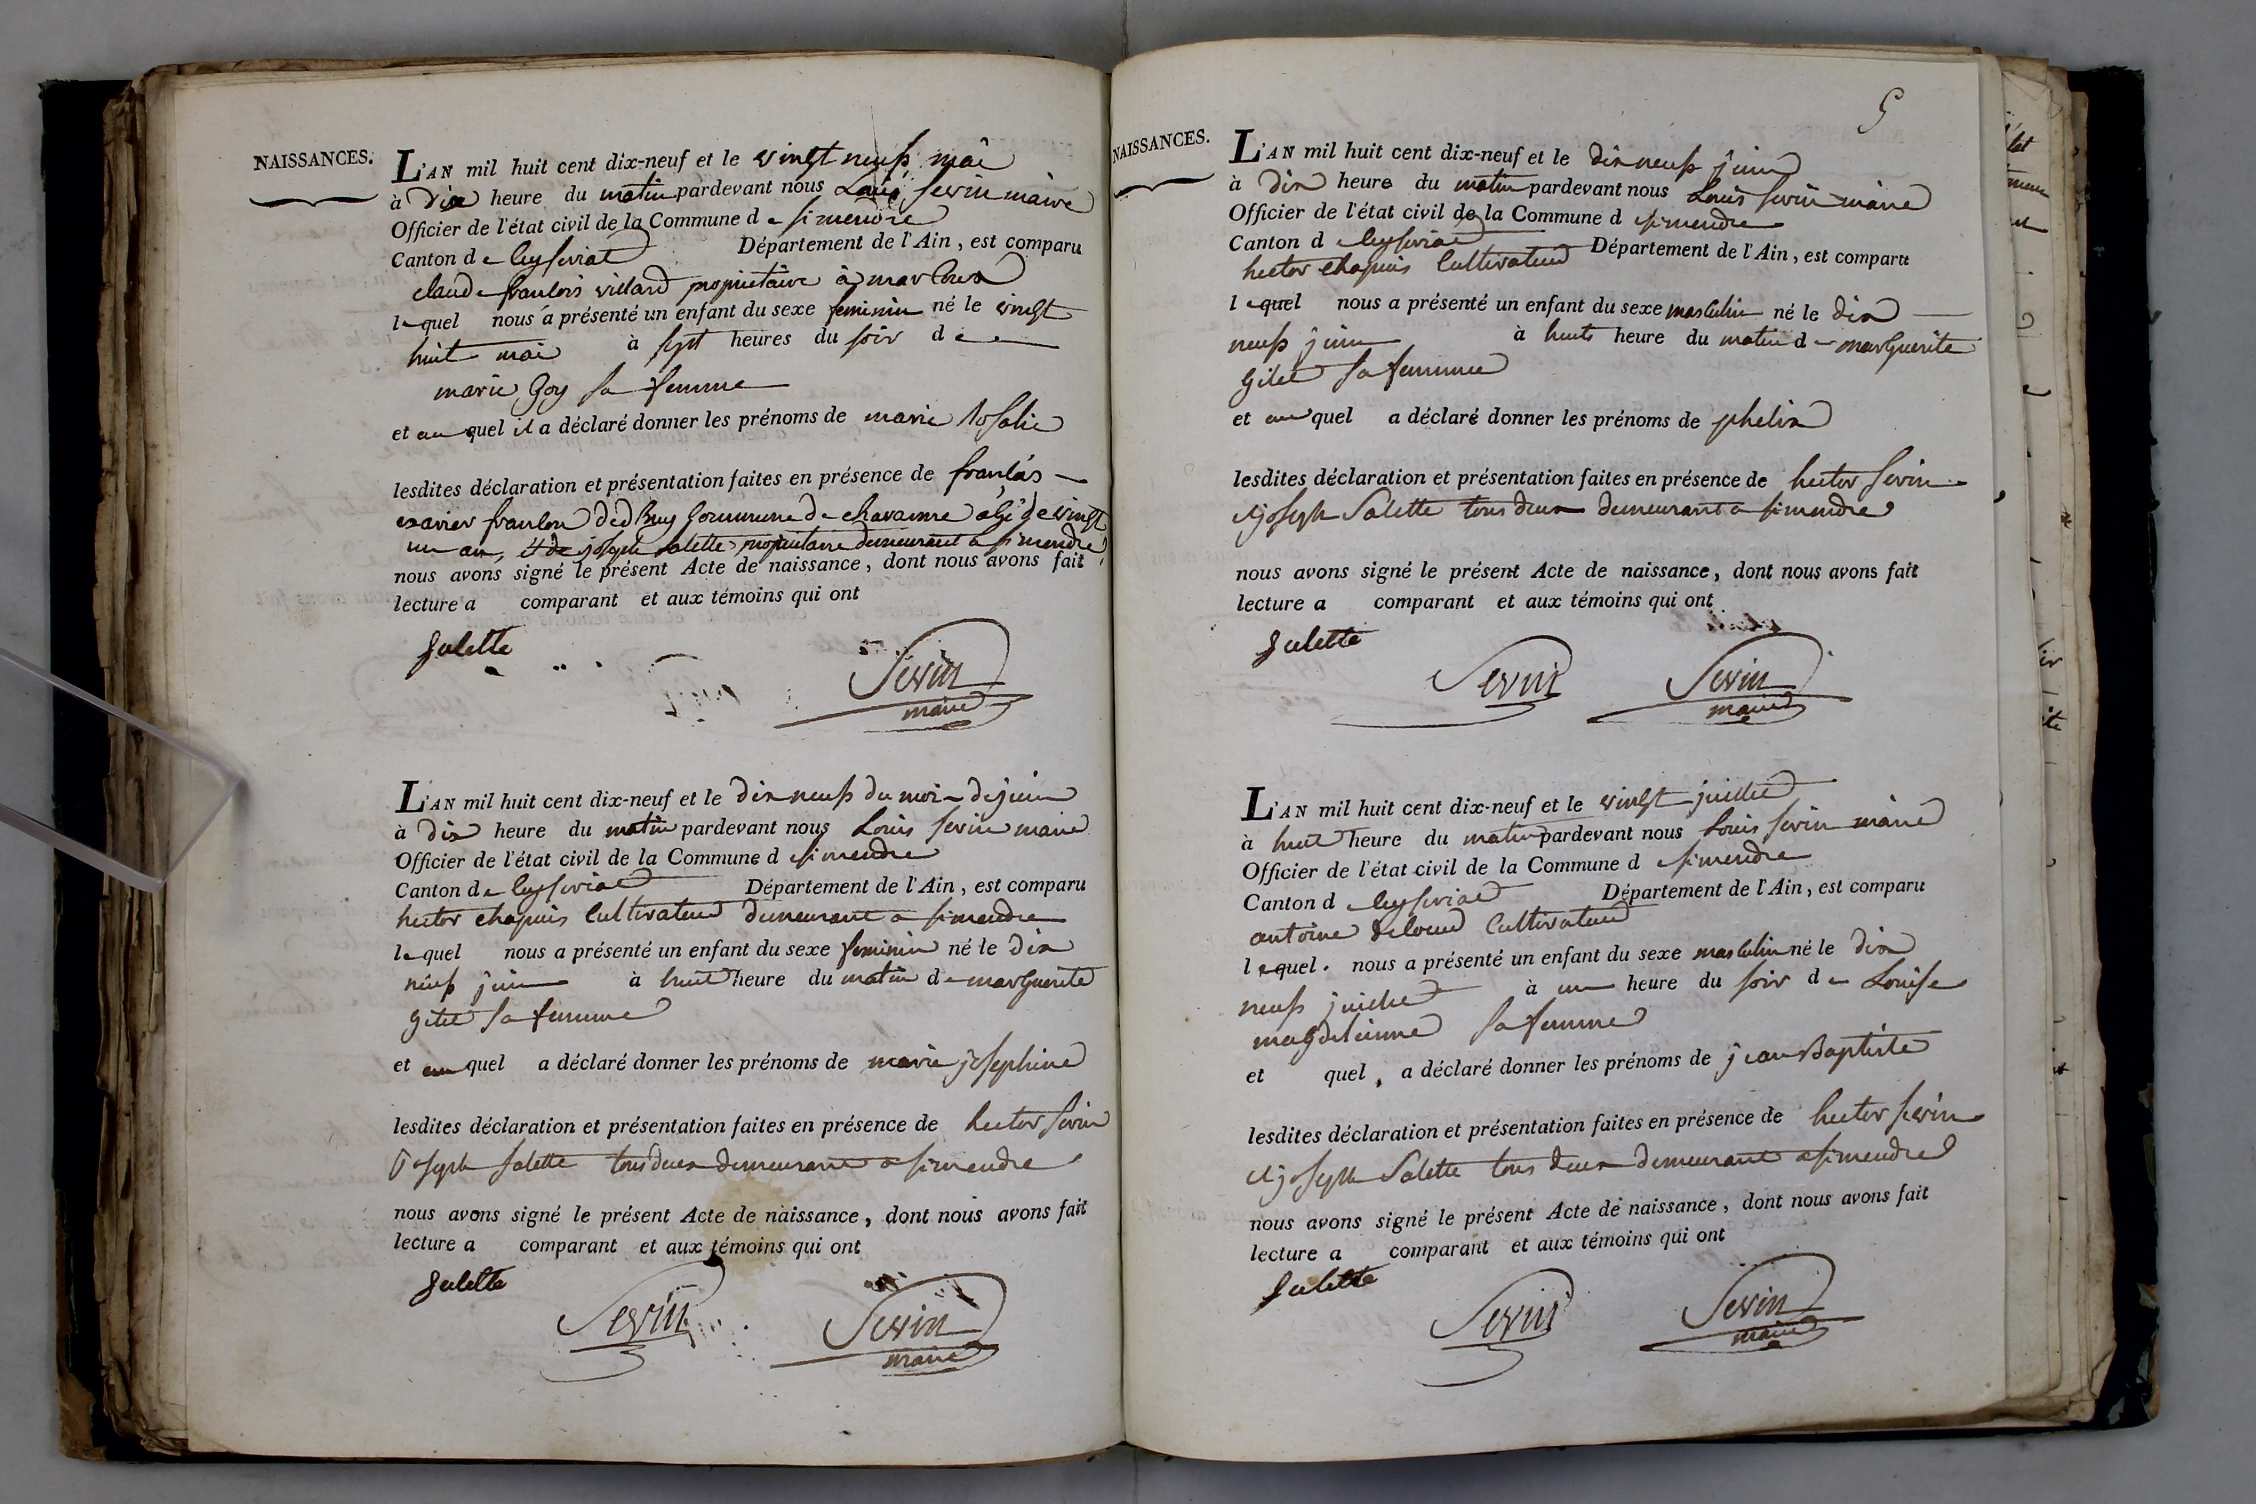 NAISSANCES.
L'AN mil huit cent dix-neuf et le vingt neuf mai
à dix heure du matin pardevant nous Louis sevin maire
Officier de l'état civil de la Commune d e simendre
Canton d e Ceyseriat Département de l'Ain, est comparu
claude francois villard propriétaire à
le quel nous a présenté un enfant du sexe feminin né le vingt
huit mai à sept heures du soir d e
marie Goy sa femme
et au quel il a déclaré donner les prénoms de marie Rosalie
lesdites déclaration et présentation faites en présence de francois
exavier Commune de chavanne agé de vingt
un an, et de joseph salette propriétaire demeurant a simendre
nous avons signé le présent Acte de naissance, dont nous avons fait
lecture a comparant et aux témoins qui ont
Salette
Sevin
maire
L'AN mil huit cent dix-neuf et le dix neuf du mois de juin
à dix heure du matin pardevant nous Louis sevin maire
Officier de l'état civil de la Commune d e simendre
Canton d e Ceyseriat Département de l'Ain, est comparu
hector chapuis Cultivateur demeurant a simendre
le quel nous a présenté un enfant du sexe feminin né le dix
neuf juin à huit heure du matin d e marguerite
sa femme
et au quel a déclaré donner les prénoms de marie josephine
lesdites déclaration et présentation faites en présence de hector sevin
joseph salette tous deux demeurant a simendre
nous avons signé le présent Acte de naissance, dont nous avons fait
lecture a comparant et aux témoins qui ont
Salette
Sevin
Sevin
maire
5
NAISSANCES.
L'AN mil huit cent dix-neuf et le dix neuf juin
à dix heure du matin pardevant nous Louis sevin maire
Officier de l'état civil de la Commune d e simendre
Canton d e Ceyseriat Département de l'Ain, est comparu
hector chapuis Cultivateur
l e quel nous a présenté un enfant du sexe masculin né le dix
neuf juin à huit heure du matin d e marguerite
sa femme
et au quel a déclaré donner les prénoms de phelix
lesdites déclaration et présentation faites en présence de hector sevin
et joseph Salette tous deux demeurant a simendre
nous avons signé le présent Acte de naissance, dont nous avons fait
lecture a comparant et aux témoins qui ont
Salette
Sevin
Sevin
maire
L'AN mil huit cent dix-neuf et le vingt juillet
à huit heure du matin pardevant nous Louis sevin maire
Officier de l'état civil de la Commune d e simendre
Canton d e Ceyseriat Département de l'Ain, est comparu
antoine Cultivateur
l e quel nous a présenté un enfant du sexe masculin né le dix
neuf juillet à un heure du soir d e Louise
sa femme
et quel a déclaré donner les prénoms de jean Baptiste
lesdites déclaration et présentation faites en présence de hector sevin
et joseph Salette tous deux demeurant a simendre
nous avons signé le présent Acte de naissance, dont nous avons fait
lecture a comparant et aux témoins qui ont
Salette
Sevin
Sevin
maire